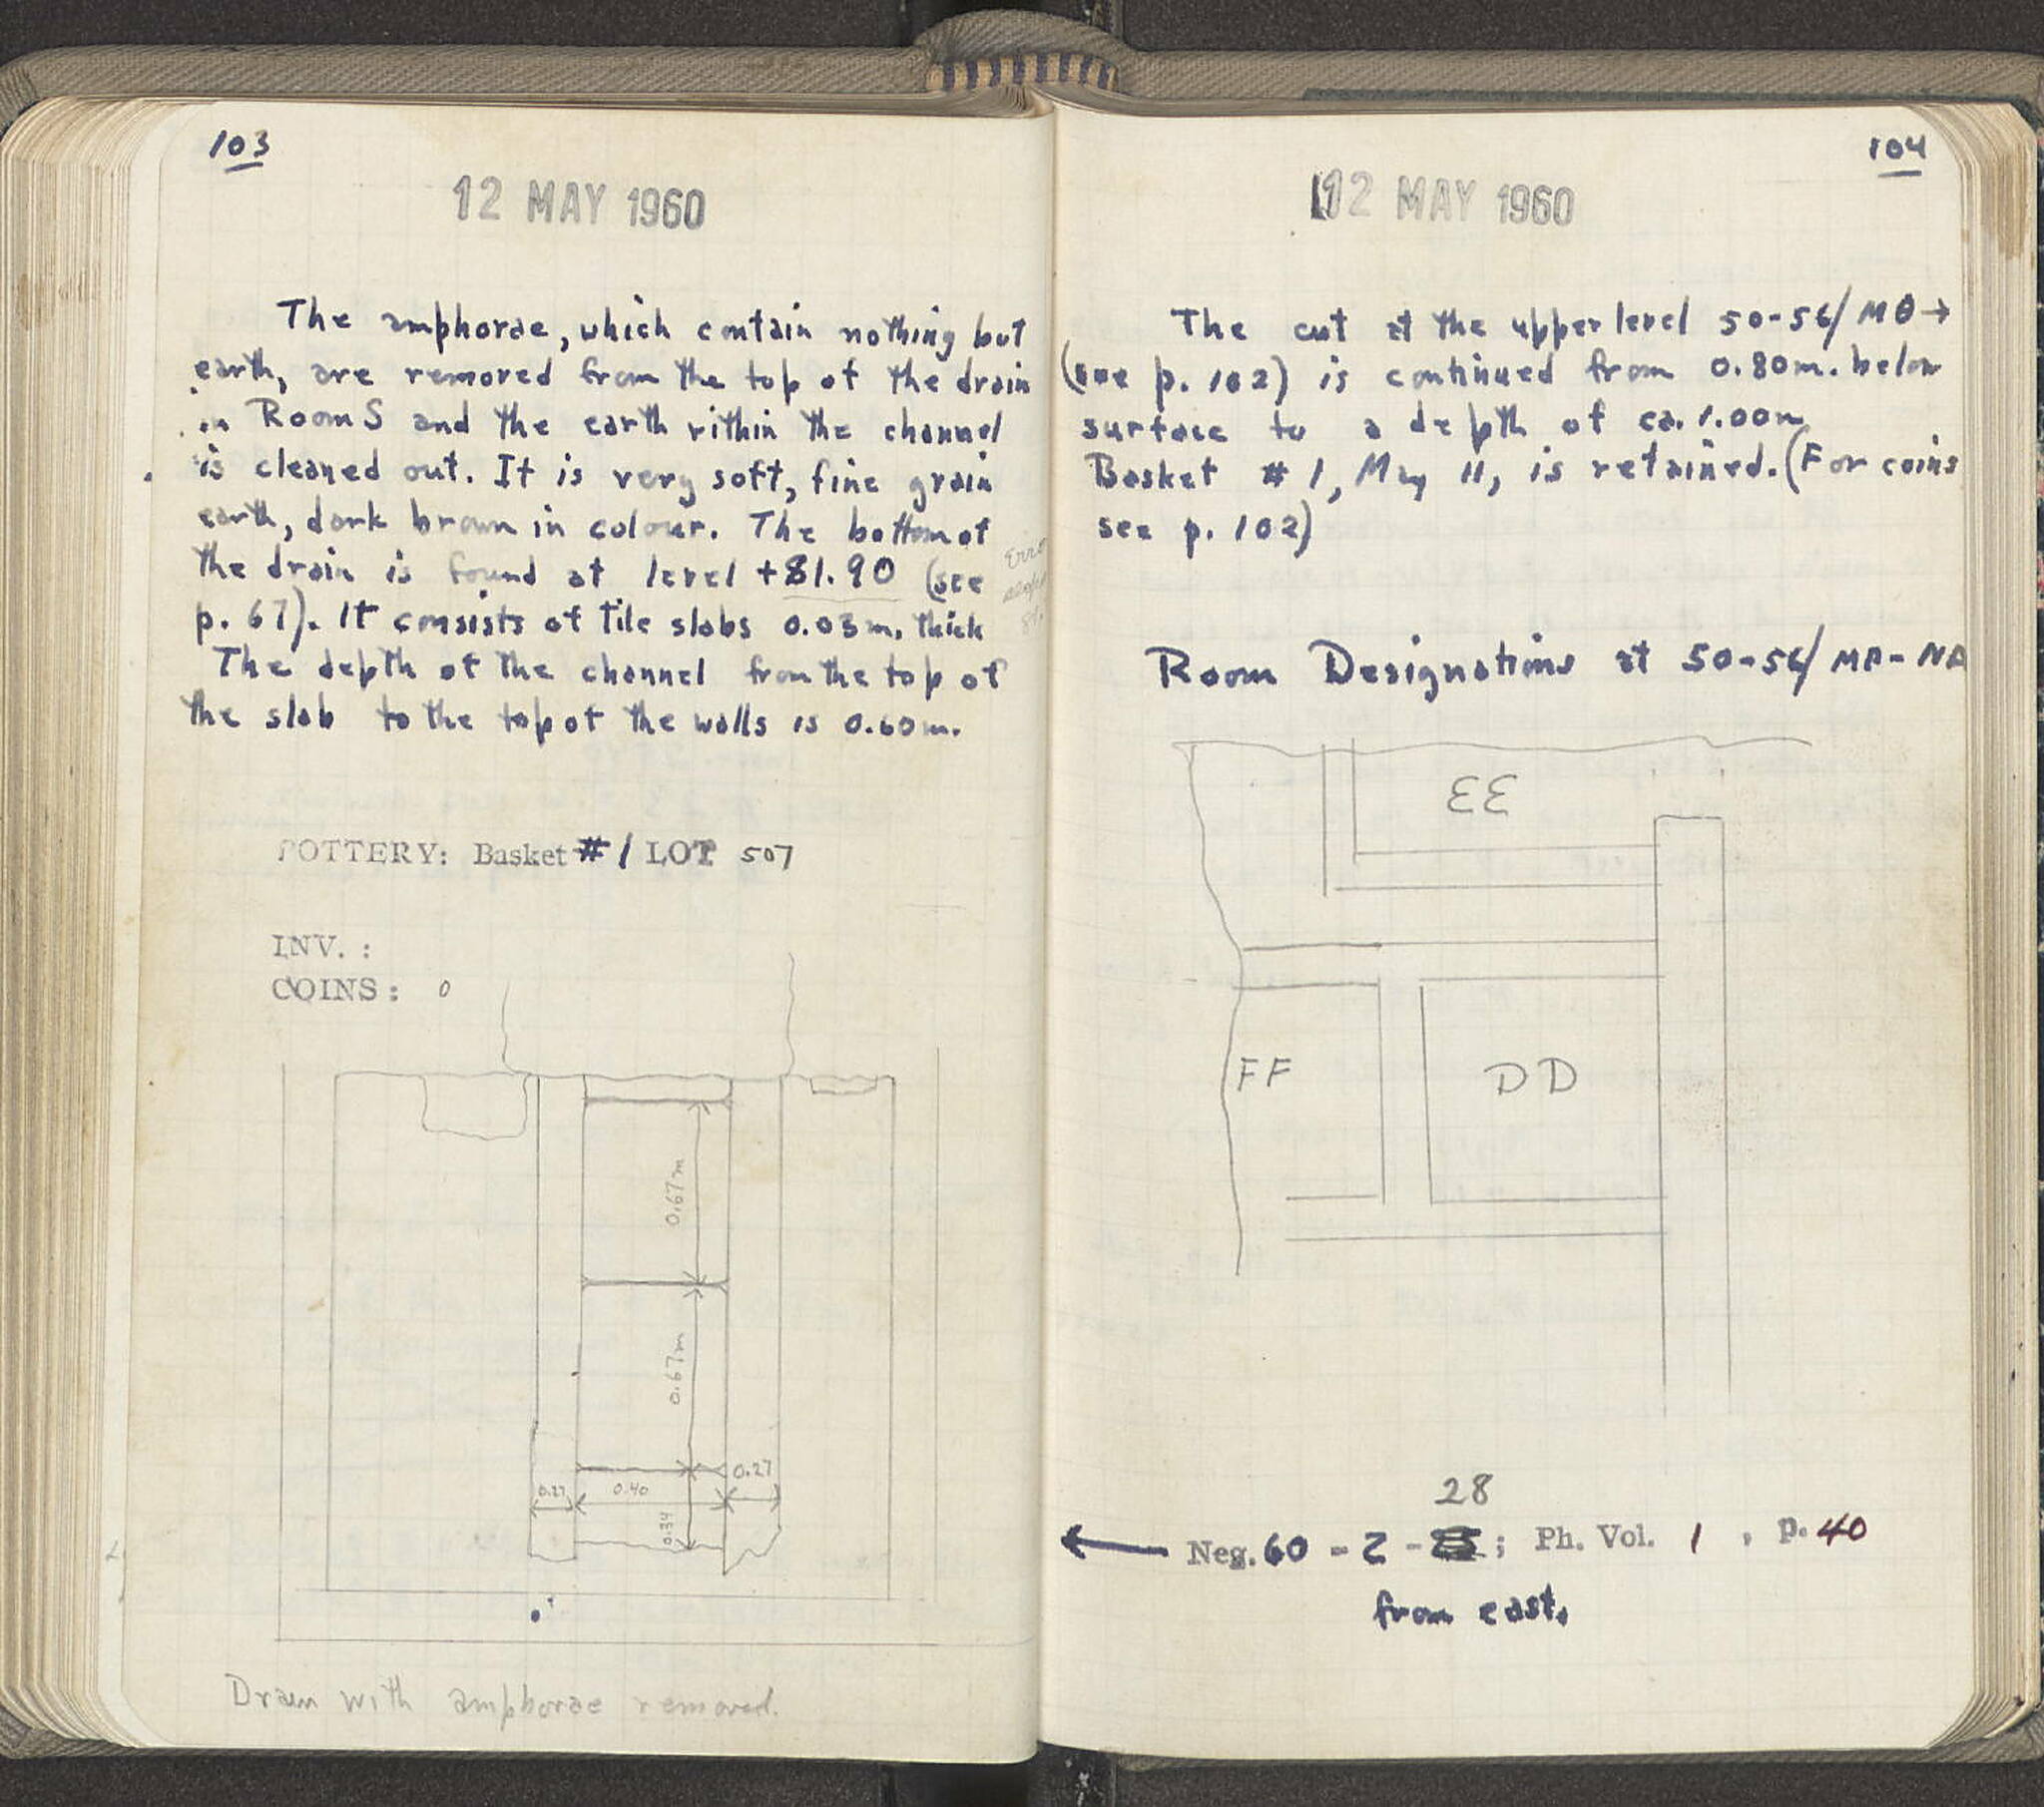 103
12 MAY 1960
The amphorae, which contain nothing but
earth, are removed from the top of the drain
in Room S and the earth within the channel
is cleaned out. It is very soft, fine grain
earth, dark brown in colour. The bottom of
the drain is found at level +81.90 (see
p. 67). It consists of tile slabs 0.03m. thick
The depth of the channel from the top of
the slab to the top of the walls is 0.60m.
POTTERY: Basket #1 LOT 507
INV. :
COINS: 0
0.67m
0.67m
0.27
0.40
0.27
0.34
Drain with amphorae removed.
104
12 MAY 1960
The cut at the upper level 50-56/ MΘ→
(see p. 102) is continued from 0.80m. below
surface to a depth of ca. 1.00m
Basket #1, May 11, is retained. (For coins
see p. 102)
Room Designations at 50-56/
EE
FF
DD
28
← Neg. 60 - 2 - ; Ph. Vol. 1 , p. 40
from east.